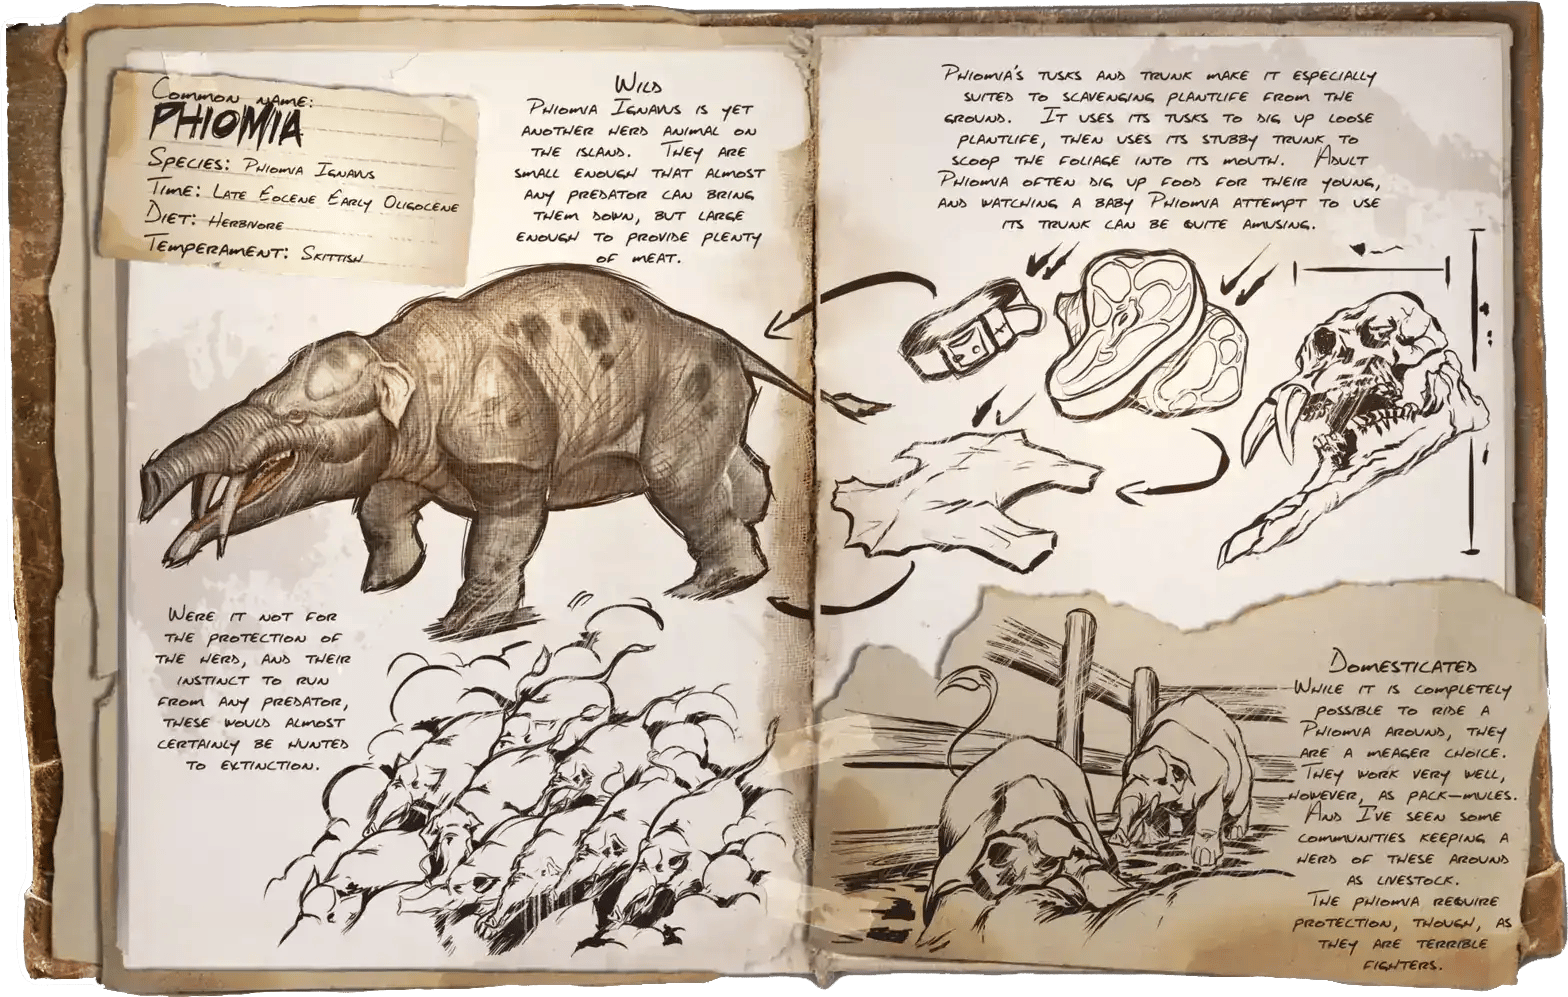 Common name:
PHIOMIA
Species: Phiomia Ignavus
Time: Late Eocene Early Oligocene
Diet: Herbivore
Temperament: Skittish
Wild
Phiomia Ignavus is yet
another herd animal on
the island. They are
small enough that almost
any predator can bring
them down, but large
enough to provide plenty
of meat.
Were it not for
the protection of
the herd, and their
instinct to run
from any predator,
these would almost
certainly be hunted
to extinction.
Phiomia's tusks and trunk make it especially
suited to scavenging plantlife from the
ground. It uses its tusks to dig up loose
plantlife, then uses its stubby trunk to
scoop the foliage into its mouth. Adult
Phiomia often dig up food for their young,
and watching a baby Phiomia attempt to use
its trunk can be quite amusing.
Domesticated
While it is completely
possible to ride a
Phiomia around, they
are a meager choice.
They work very well,
however, as pack-mules.
And I've seen some
communities keeping a
herd of these around
as livestock.
The phiomia require
protection, though, as
they are terrible
fighters.